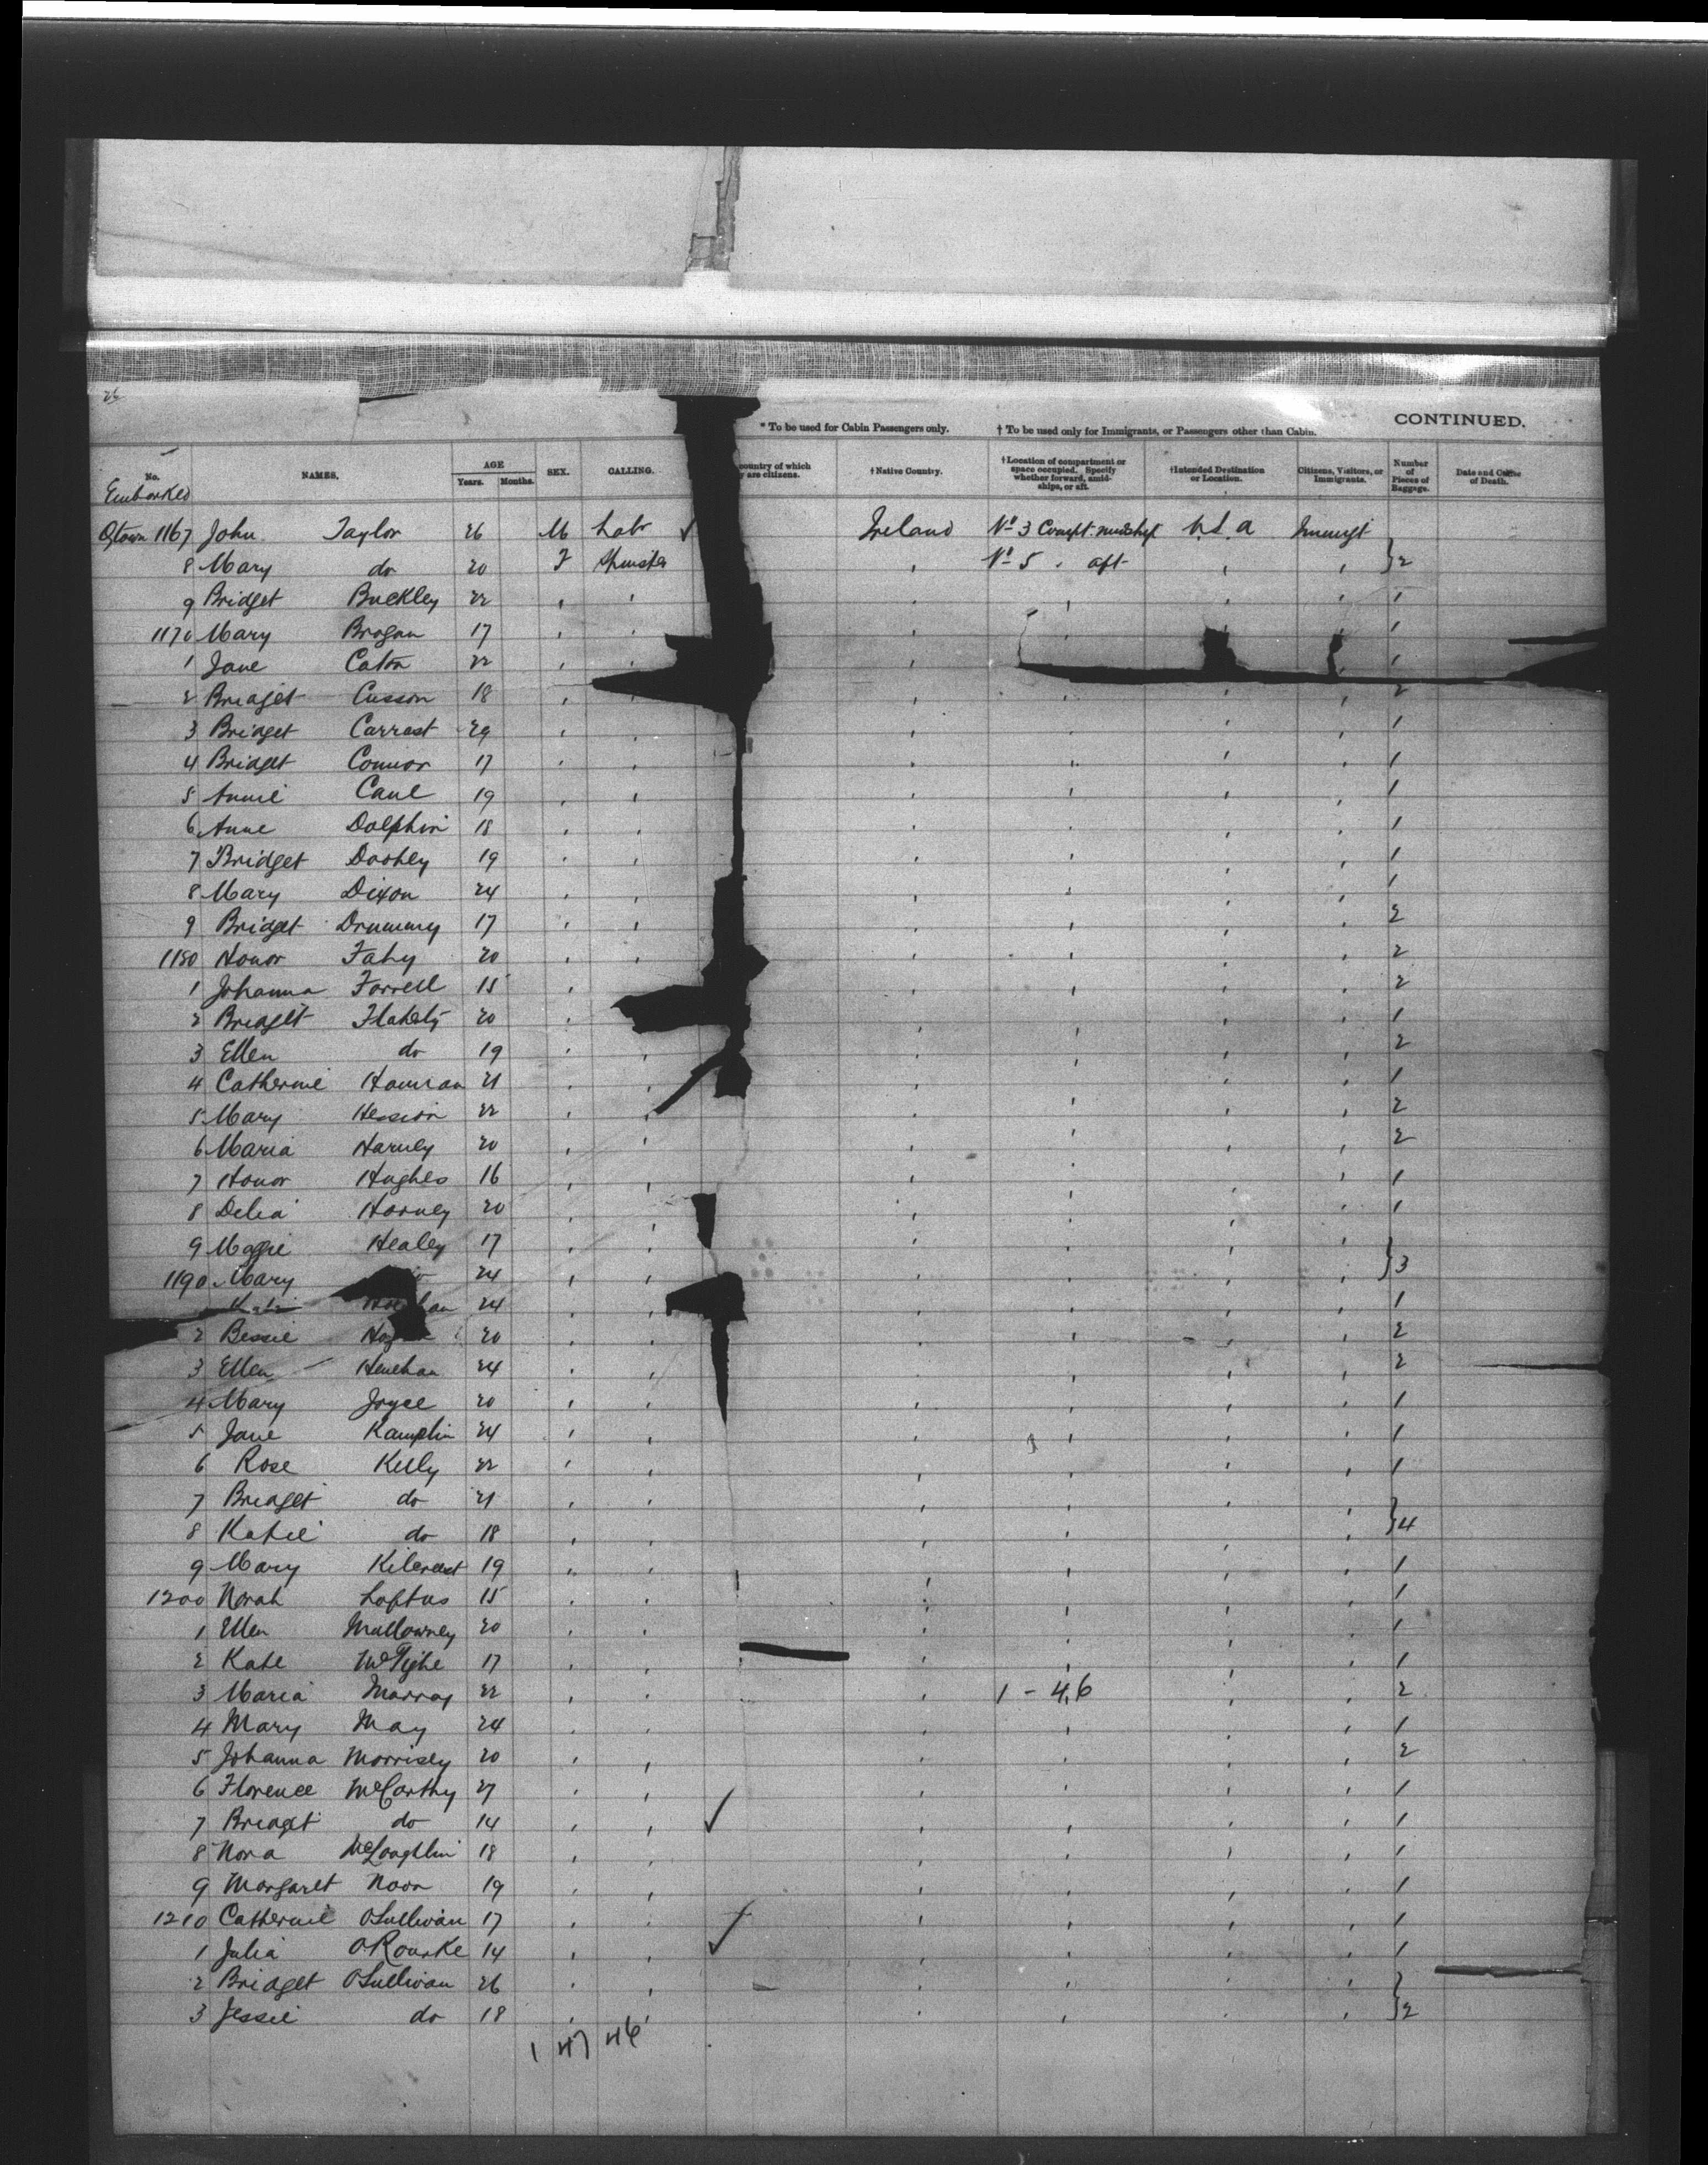 CONTINUED.
* To be used for Cabin Passengers only. † To be used only for Immigrants, or Passengers other than Cabin.
No. NAMES. AGE Years. Months. SEX. CALLING. country of which are citizens. †Native Country. †Location of compartment or space occupied. Specify whether forward, amidships, or aft. †Intended Destination or Location. Citizens, Visitors, or Immigrants. Number of Pieces of Baggage. Date and Cause of Death.
Embarked
Qtown 1167 John Taylor 26 M Labr Ireland No 3 Compt. midship U.S.A Immigt
8 Mary do 20 F Spinster ' No 5 " aft ' ' } 2
9 Bridget Buckley 22 ' ' ' ' ' ' 1
1170 Mary Brogan 17 ' ' ' ' ' 1
1 Jane Caton 22 ' ' ' ' 1
2 Bridget Cusson 18 ' ' ' ' ' ' 2
3 Bridget 29 ' ' ' ' ' ' 1
4 Bridget Connor 17 ' ' ' ' ' ' 1
5 Annie Cane 19 ' ' ' ' ' ' 1
6 Anne Dolphin 18 ' ' ' ' ' ' 1
7 Bridget 19 ' ' ' ' ' ' 1
8 Mary Dixon 24 ' ' ' ' ' ' 1
9 Bridget Drummy 17 ' ' ' ' ' ' 2
1180 Honor Fahy 20 ' ' ' ' ' ' 2
1 Johanna Farrell 15 ' ' ' ' ' 2
2 Bridget Flaherty 20 ' ' ' ' ' 1
3 Ellen do 19 ' ' ' ' ' ' 2
4 Catherine 21 ' ' ' ' ' ' 1
5 Mary Hession 22 ' ' ' ' ' ' 2
6 Maria Harney 20 ' ' ' ' ' ' 2
7 Honor Hughes 16 ' ' ' ' ' ' 1
8 Delia Harney 20 ' ' ' ' ' ' 1
9 Maggie Healey 17 ' ' ' ' ' '
1190 Mary 24 ' ' ' ' ' ' } 3
24 ' ' ' ' ' ' 1
2 Bessie 20 ' ' ' ' ' ' 2
3 Ellen Henehan 24 ' ' ' ' ' ' 2
4 Mary Joyce 20 ' ' ' ' ' ' 1
5 Jane Kamplin 24 ' ' ' ' ' ' 1
6 Rose Kelly 22 ' ' ' ' ' ' 1
7 Bridget do 21 ' ' ' ' ' '
8 Katie do 18 ' ' ' ' ' ' } 4
9 Mary 19 ' ' ' ' ' ' 1
1200 Norah Loftus 15 ' ' ' ' ' ' 1
1 Ellen Mullowney 20 ' ' ' ' ' ' 1
2 Kate McTighe 17 ' ' ' ' ' ' 1
3 Maria Murray 22 ' ' ' 1 - 46 ' ' 2
4 Mary May 24 ' ' ' ' ' ' 1
5 Johanna Morrisey 20 ' ' ' ' ' ' 2
6 Florence McCarthy 27 ' ' ' ' ' ' 1
7 Bridget do 14 ' ' ✓ ' ' ' ' 1
8 Nora McLoughlin 18 ' ' ' ' ' ' 1
9 Margaret Noon 19 ' ' ' ' ' ' 1
1210 Catherine OSullivan 17 ' ' ' ' ' ' 1
1 Julia ORourke 14 ' ' ✓ ' ' ' ' 1
2 Bridget OSullivan 26 ' ' ' ' ' '
3 Jessie do 18 ' ' ' ' ' ' } 2
1 47 46